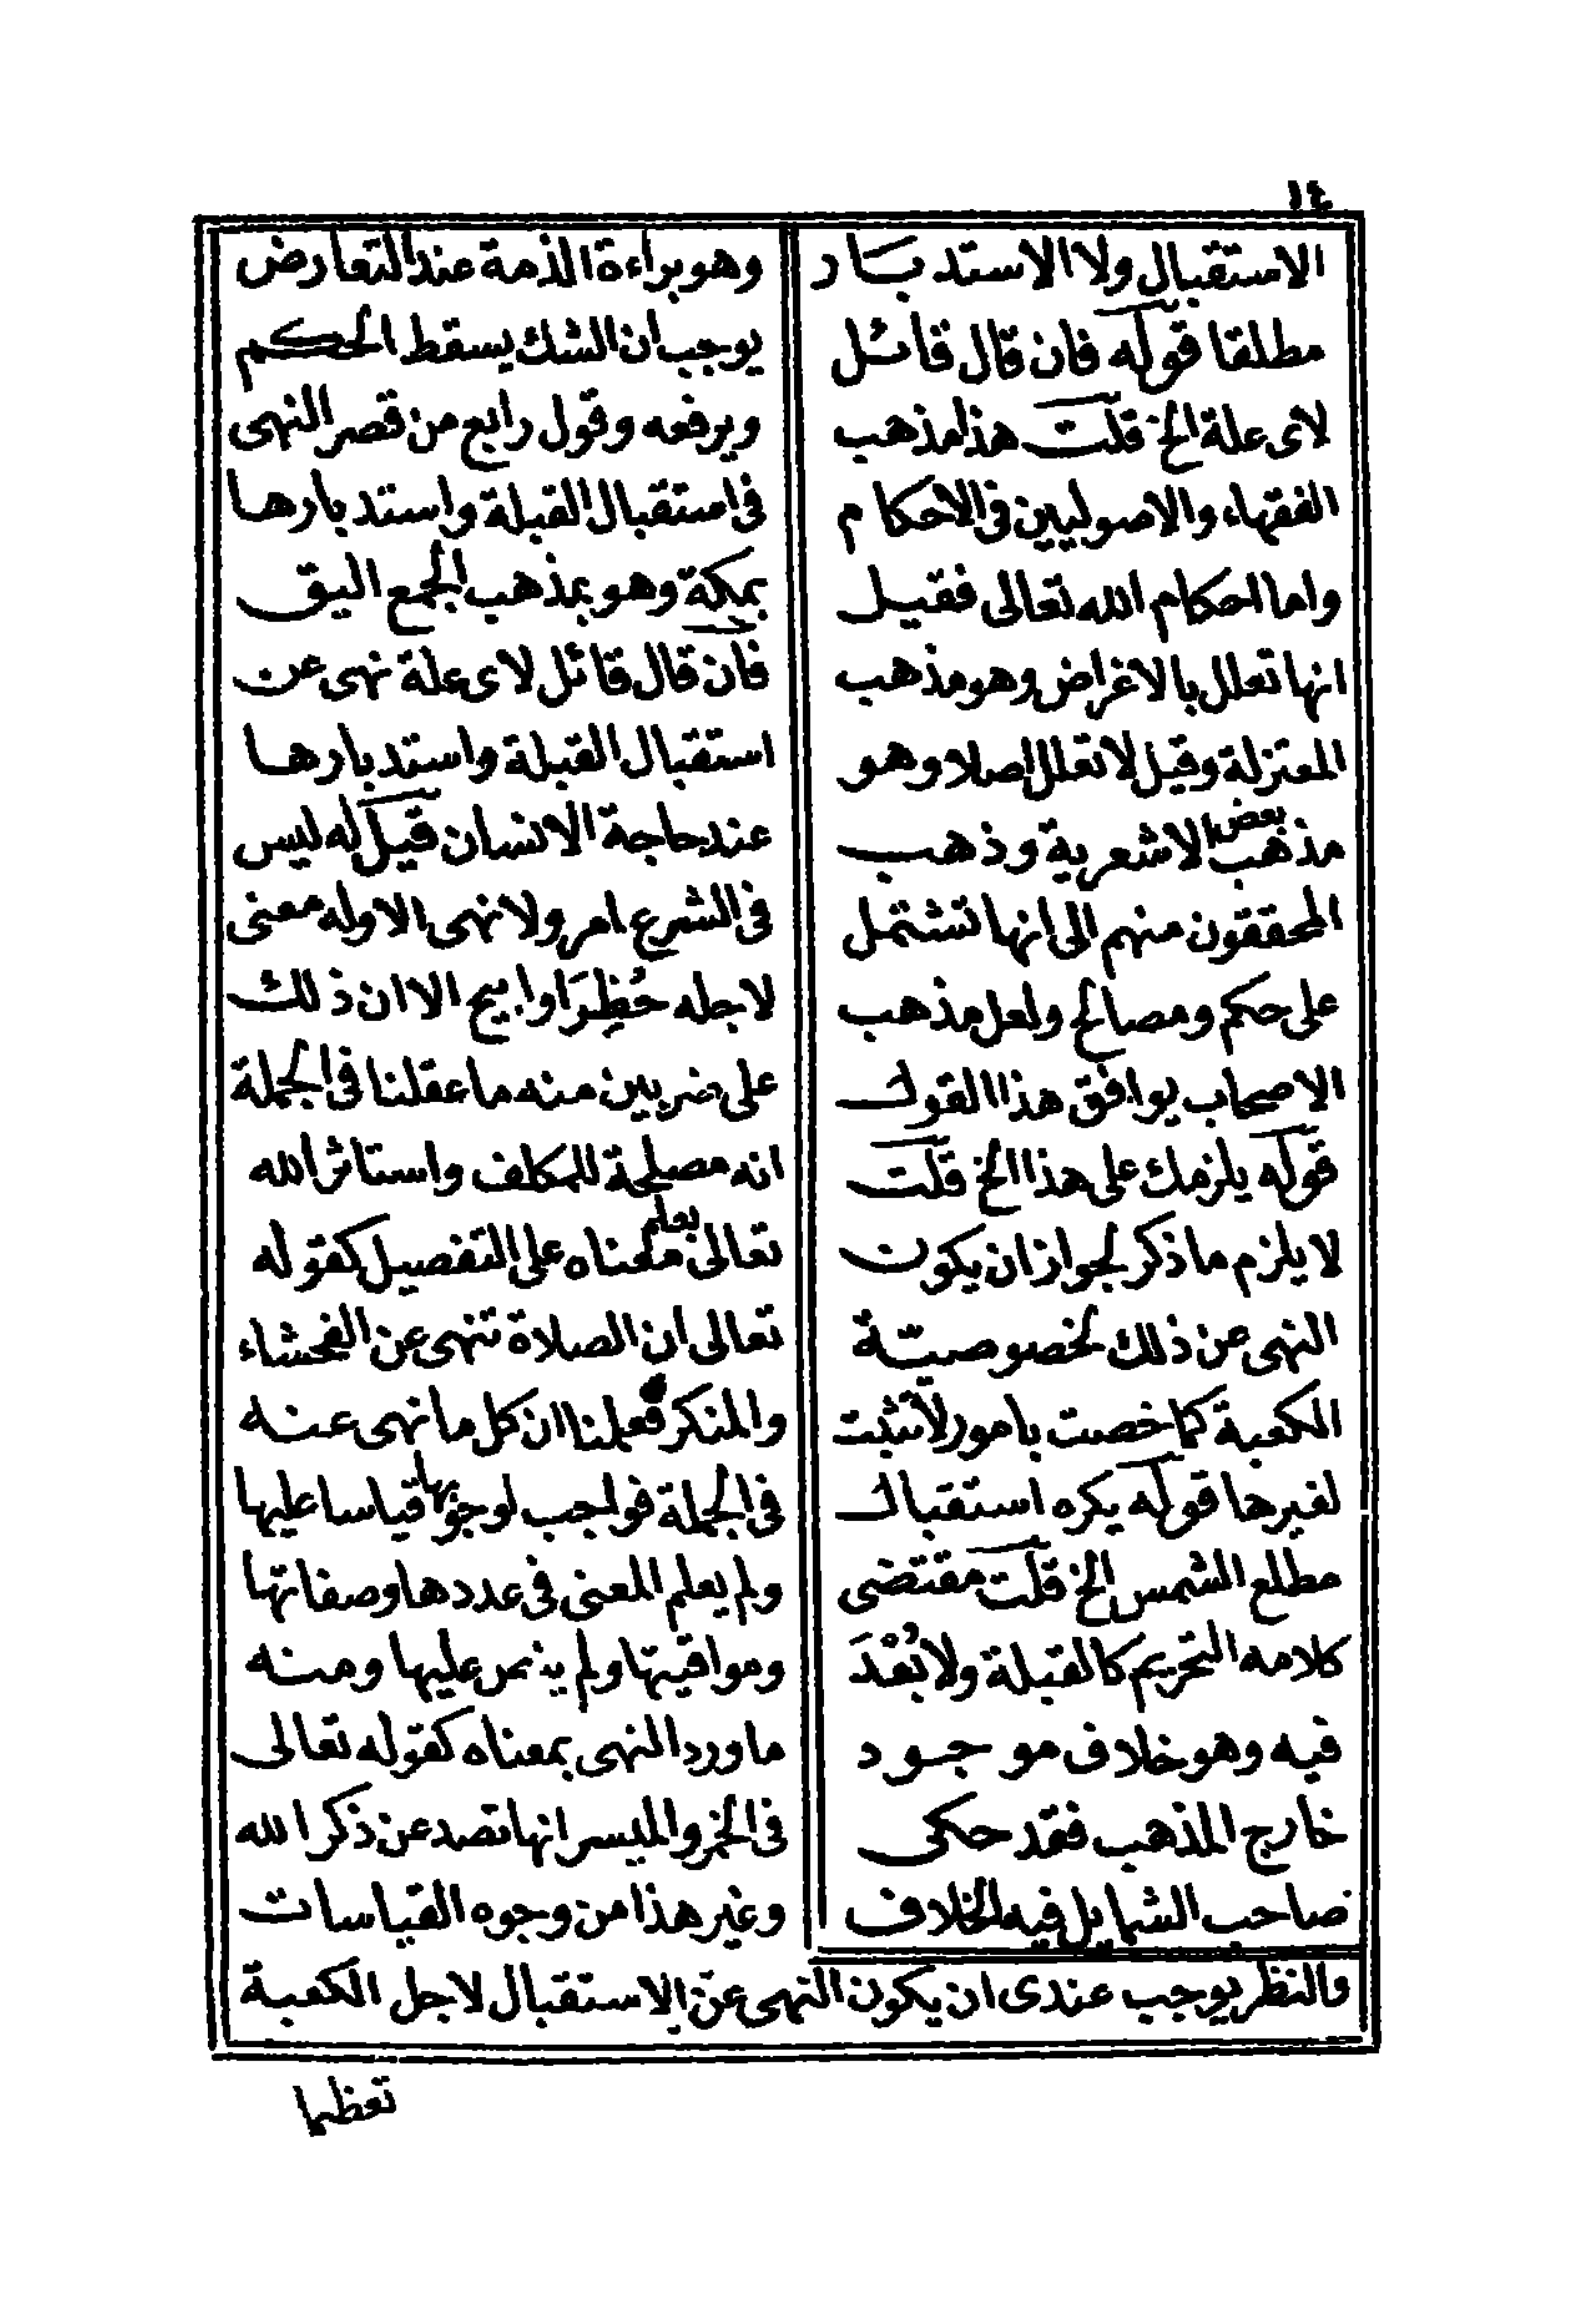 ١٤
الاستقبال ولا الاستدبار
مطلقا قوله فان قال قائل
لاى علة الخ قلت هذا مذهب
الفقهاء والاصوليين فى الاحكام
واما احكام الله تعالى فقيل
انها تعلل بالاغراض وهو مذهب
المعتزلة وقيل لا تعلل اصلا وهو
مذهب بعض الاشعرية وذهب
المحققون منهم الى انها تشتمل
على حكم ومصالح ولعل مذهب
الاصحاب يوافق هذا القول
قوله يلزمك على هذا الخ قلت
لا يلزم ما ذكر لجواز ان يكون
النهى عن ذلك لخصوصيتة
الكعبة كما خصت بامور لا تثبت
لغيرها قوله يكره استقبال
مطلع الشمس الخ قلت مقتضى
كلامه التحريم كالقبلة ولا بُعْدَ
فيه وهو خلاف موجود
خارج المذهب فقد حكى
صاحب الشمايل فيه الخلاف
وهو براءة الذمة عند التعارض
يوجب ان الشك يسقط الحكم
ويرفعه وقول رابع من قصر النهى
فى استقبال القبلة واستدبارها
بمكة وهو بمذهب الجمع اليق
فان قال قائل لاى علة نهى عن
استقبال القبلة واستدبارها
عند حاجة الانسان قيل له ليس
فى الشرع امر ولا نهى الا وله معنى
لاجله حُظِرَ او ابيح الا ان ذلك
على ضربين منه ما عقلنا فى الجملة
انه مصلحة للمكلف واستاثر الله
تعالى بعلم معناه على التفصيل كقوله
تعالى ان الصلاة تنهى عن الفحشاء
والمنكر فعلمنا ان كل ما نهى عنه
فى الجملة فواجب لوجوبها قياسا عليها
ولم يعلم المعنى فى عددها وصفاتها
ومواقيتها ولم ينص عليها ومنه
ما ورد النهى بمعناه كقوله تعالى
فى الخمر والميسر انها تصد عن ذكر الله
وغير هذا من وجوه القياسات
والنظر يوجب عندى ان يكون النهى عن الاستقبال لاجل الكعبة
تعظيما